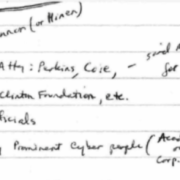 (or Hiner)
Atty: Perkins, Coie, - send
for
Clinton Foundation, etc.
ficials
Prominent Cyber people (Acad
or
Corp